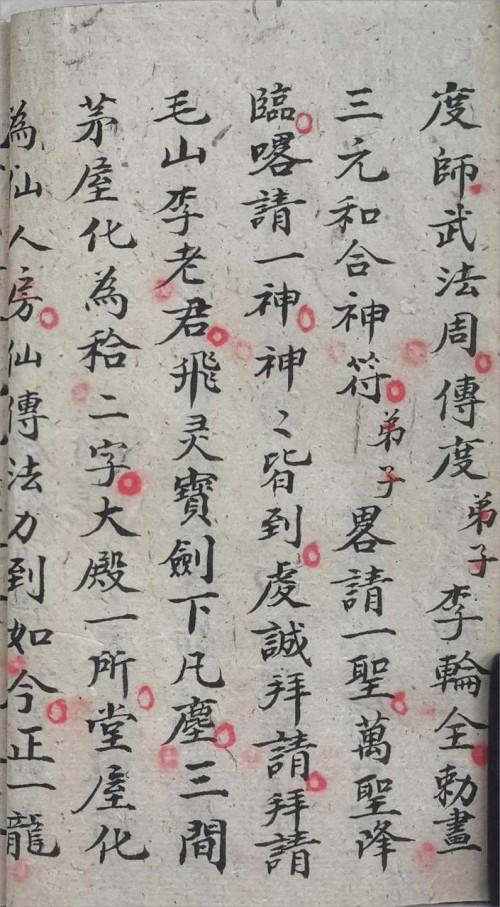 度師武法周傳度弟子李輪全勅畫
三元和合神符弟子畧請一聖萬聖降
臨喀請一神神〻皆到虔誠拜請拜請
毛山李老君飛灵寶劍下凡塵三間
茅屋化為秴二字大殿一所堂屋化
為仙人房仙傳法力到如今正一龍